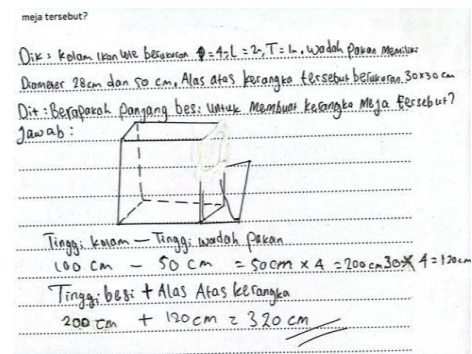 meja tersebut?
Dik : Kolam Ikan lele berukuran P = 4, L = 2, T = 1m, wadah Pakan Memiliki
Diameter 28cm dan 50 cm, Alas atas kerangka tersebut berukuran 30x30 cm
Dit : Berapakah Panjang besi untuk Membuat kerangka Meja tersebut?
Jawab :
Tinggi kolam — Tinggi wadah Pakan
100 cm - 50 cm = 50cm x 4 = 200 cm 30 x 4 = 120cm
Tinggi besi + Alas Atas kerangka
200 cm + 120 cm = 320 cm